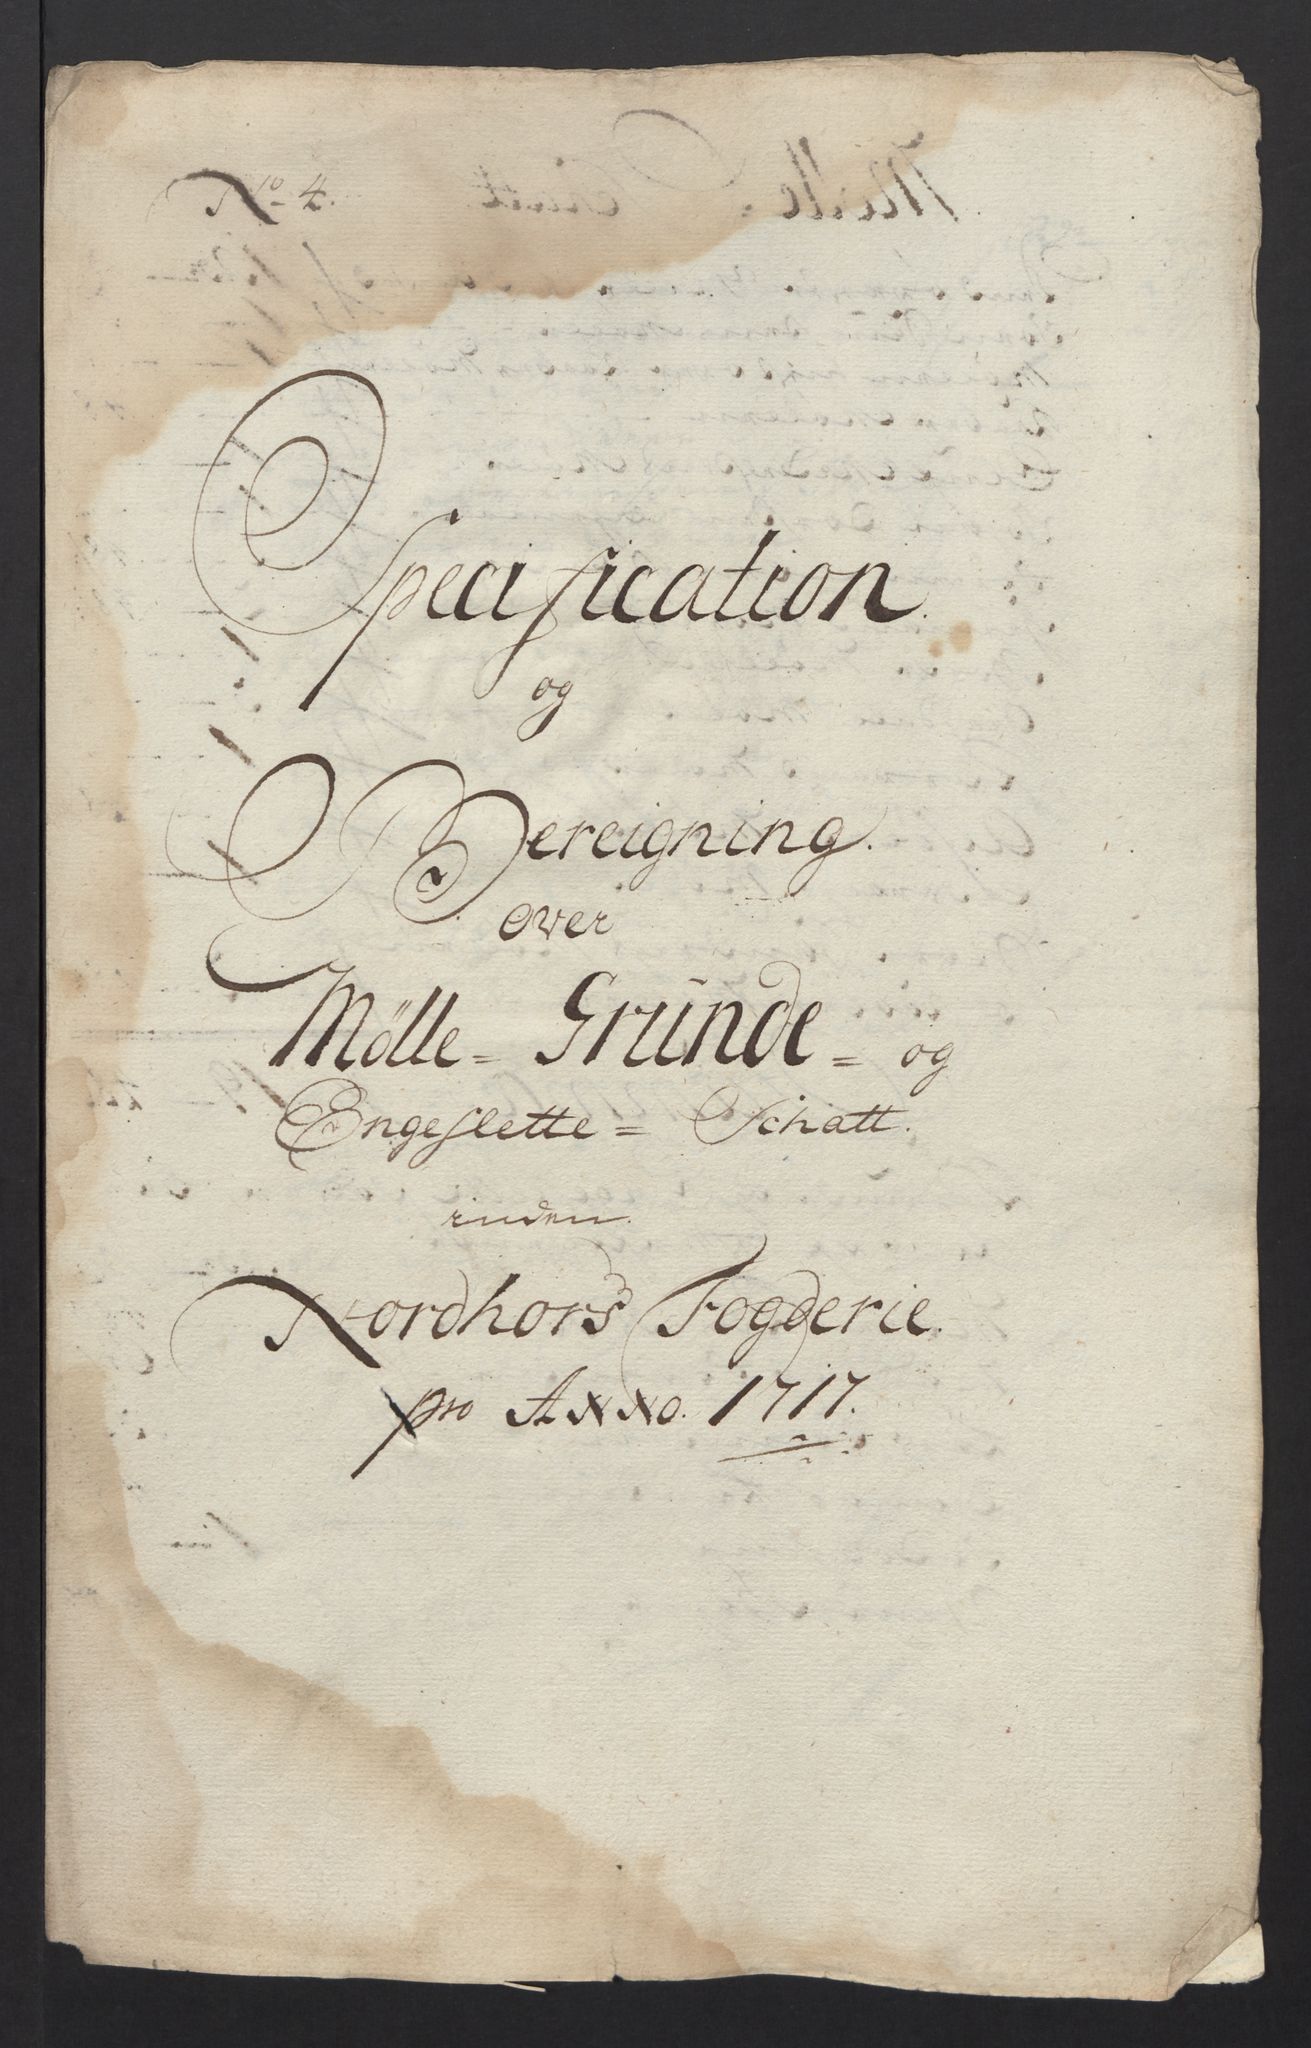 No 4.
Specification
og
Bereigning.
over
Mölle = Gründe = og
Engeslette = Schatt.
inden
Nordhors Fogderie.
pro Anno. 1717.